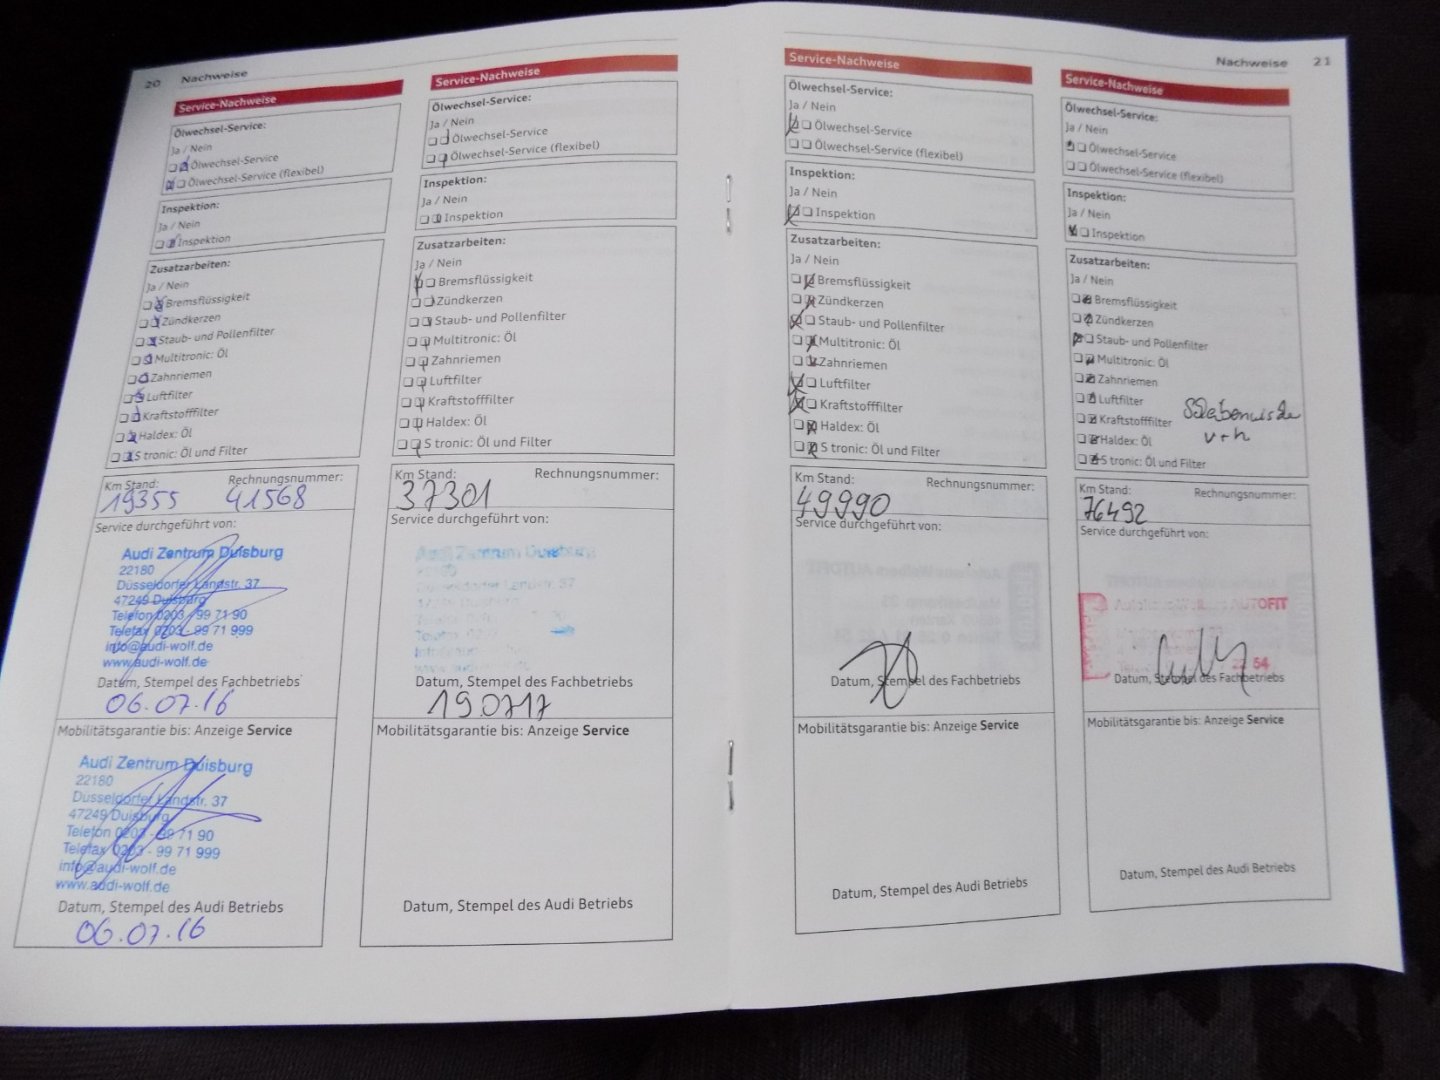 20 Nachweise
Service-Nachweise
Ölwechsel-Service:
Ja / Nein
Ölwechsel-Service
Ölwechsel-Service (flexibel)
Inspektion:
Ja / Nein
Inspektion
Zusatzarbeiten:
Ja / Nein
Bremsflüssigkeit
Zündkerzen
Staub- und Pollenfilter
Multitronic: Öl
Zahnriemen
Luftfilter
Kraftstofffilter
Haldex: Öl
S tronic: Öl und Filter
Km Stand: Rechnungsnummer:
19355 41568
Service durchgeführt von:
Audi Zentrum Duisburg
22180
Düsseldorfer Landstr. 37
47249 Duisburg
Telefon 0203 - 99 71 90
Telefax 0203 - 99 71 999
info@audi-wolf.de
www.audi-wolf.de
Datum, Stempel des Fachbetriebs
06.07.16
Mobilitätsgarantie bis: Anzeige Service
Audi Zentrum Duisburg
22180
Düsseldorfer Landstr. 37
47249 Duisburg
Telefon 0203 - 99 71 90
Telefax 0203 - 99 71 999
info@audi-wolf.de
www.audi-wolf.de
Datum, Stempel des Audi Betriebs
06.07.16
Service-Nachweise
Ölwechsel-Service:
Ja / Nein
Ölwechsel-Service
Ölwechsel-Service (flexibel)
Inspektion:
Ja / Nein
Inspektion
Zusatzarbeiten:
Ja / Nein
Bremsflüssigkeit
Zündkerzen
Staub- und Pollenfilter
Multitronic: Öl
Zahnriemen
Luftfilter
Kraftstofffilter
Haldex: Öl
S tronic: Öl und Filter
Km Stand: Rechnungsnummer:
37301
Service durchgeführt von:
Audi Zentrum Duisburg
22180
Düsseldorfer Landstr. 37
Datum, Stempel des Fachbetriebs
190717
Mobilitätsgarantie bis: Anzeige Service
Datum, Stempel des Audi Betriebs
Nachweise 21
Service-Nachweise
Ölwechsel-Service:
Ja / Nein
Ölwechsel-Service
Ölwechsel-Service (flexibel)
Inspektion:
Ja / Nein
Inspektion
Zusatzarbeiten:
Ja / Nein
Bremsflüssigkeit
Zündkerzen
Staub- und Pollenfilter
Multitronic: Öl
Zahnriemen
Luftfilter
Kraftstofffilter
Haldex: Öl
S tronic: Öl und Filter
Km Stand: Rechnungsnummer:
49990
Service durchgeführt von:
Datum, Stempel des Fachbetriebs
Mobilitätsgarantie bis: Anzeige Service
Datum, Stempel des Audi Betriebs
Service-Nachweise
Ölwechsel-Service:
Ja / Nein
Ölwechsel-Service
Ölwechsel-Service (flexibel)
Inspektion:
Ja / Nein
Inspektion
Zusatzarbeiten:
Ja / Nein
Bremsflüssigkeit
Zündkerzen
Staub- und Pollenfilter
Multitronic: Öl
Zahnriemen
Luftfilter
Kraftstofffilter
Haldex: Öl
S tronic: Öl und Filter
v+h
Km Stand: Rechnungsnummer:
76492
Service durchgeführt von:
AUTOFIT
54
Datum, Stempel des Fachbetriebs
Mobilitätsgarantie bis: Anzeige Service
Datum, Stempel des Audi Betriebs